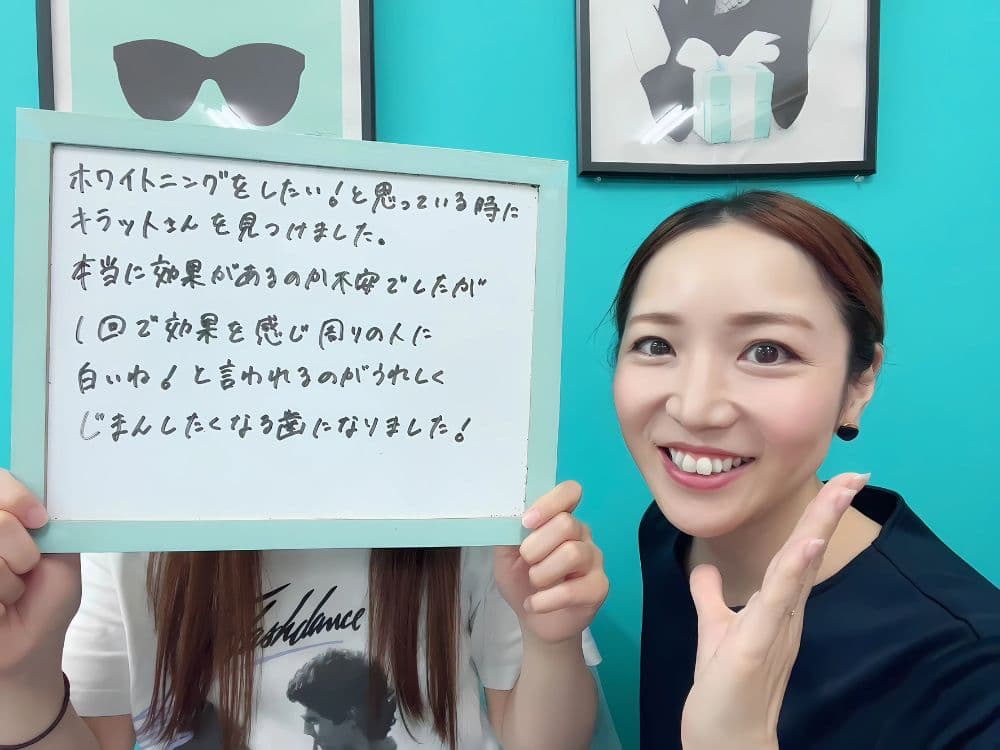 ホワイトニングをしたい!と思っている時に
キラットさんを見つけました。
本当に効果があるのか不安でしたが
1回で効果を感じ周りの人に
白いね!と言われるのがうれしく
じまんしたくなる歯になりました!
Flashdance